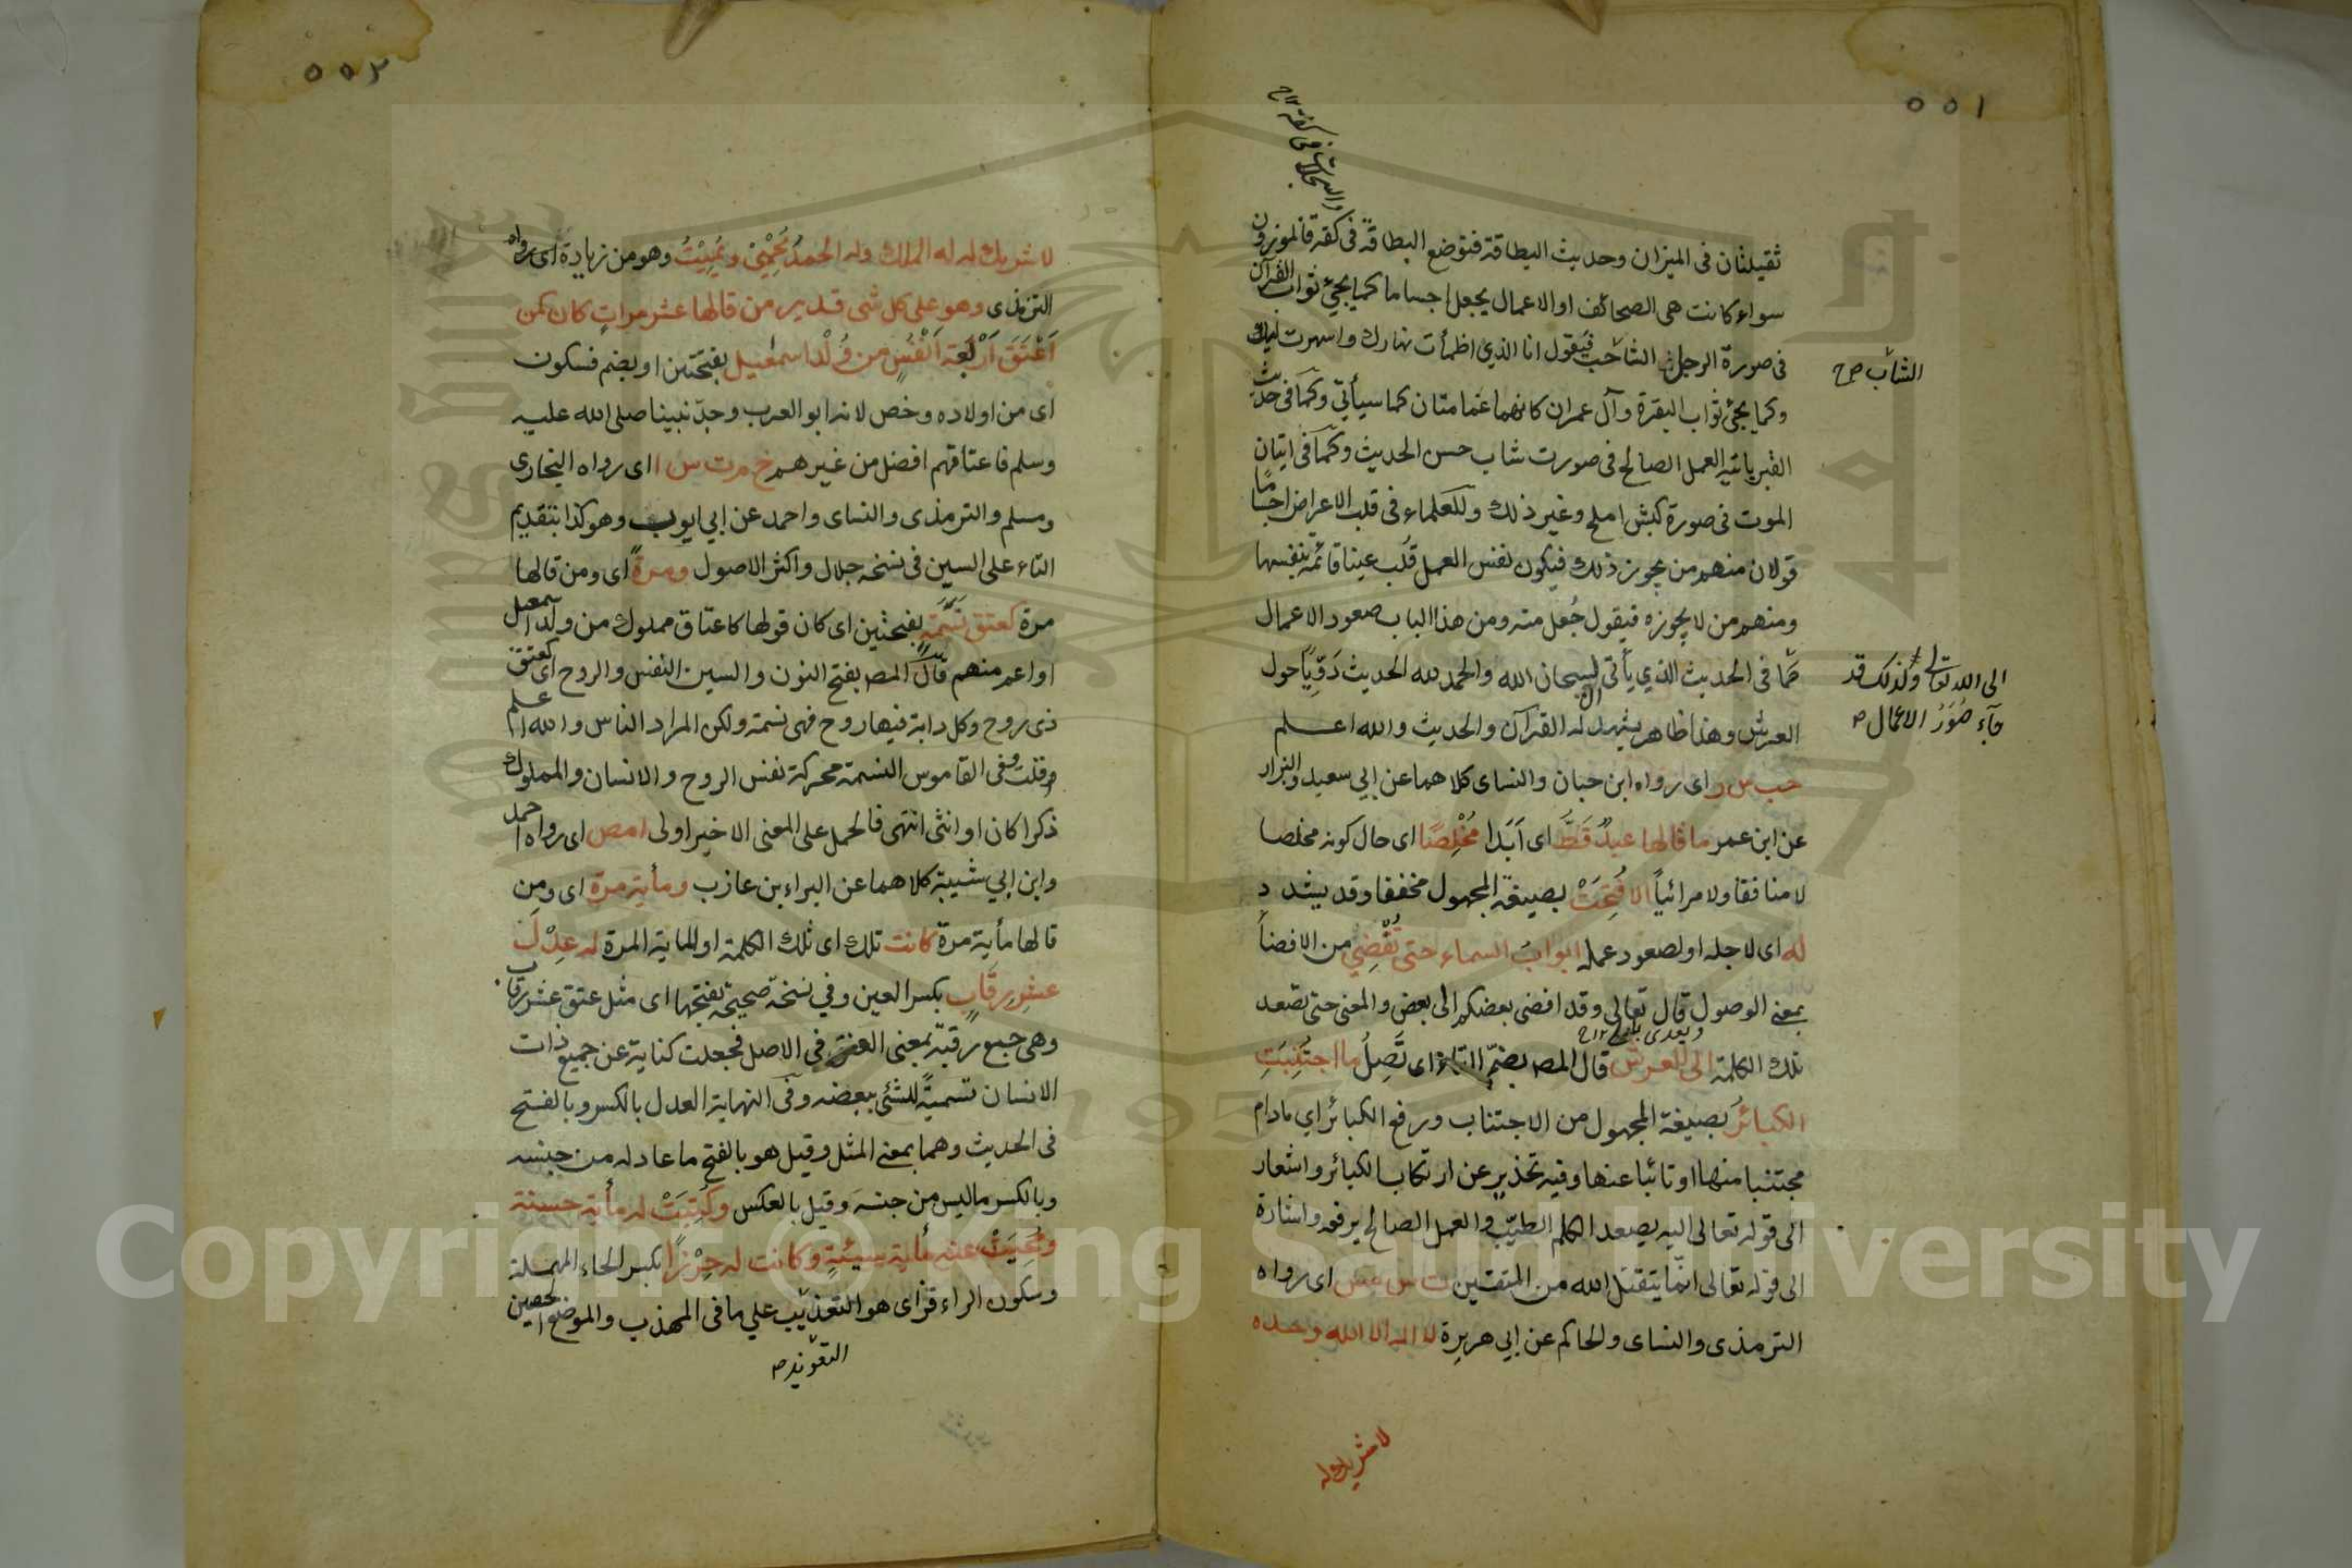 ٥٥١
والسجلات في كفة ١٢ ح
ثقيلتان فى الميزان وحديث البطاقة فتوضع البطاقة فى كفة فالموزون
سواء كانت هى الصحائف او الاعمال يجعل اجساما كما يجيئ ثواب القرآن
فى صورة الرجل الشاحب فيقول انا الذي اظمأت نهارك واسهرت ليلك
الشاب ح
وكما يجئ ثواب البقرة وآل عمران كانهما غمامتان كما سيأتي وكما فى حديث
القبر يأتيه العمل الصالح فى صورت شاب حسن الحديث وكما فى اتيان
الموت فى صورة كبش املح وغير ذلك وللعلماء فى قلب الاعراض اجساما
قولان منهم من يجوز ذلك فيكون نفس العمل قلب عينا قائمة بنفسها
ومنهم من لا يجوزه فيقول جُعل منه ومن هذا الباب صعود الاعمال
الى الله تعالى وكذلك قد
جآء صُوَرُ الاعمال ص
كما فى الحديث الذي يأتى لسبحان الله والحمد لله الحديث دَوِيًّا حول
العرش وهذا ظاهر يشهد له القرآن والحديث والله اعلم
حب س ر اى رواه ابن حبان والنساى كلاهما عن ابي سعيد والبزار
عن ابن عمر ما قالها عبدٌ قَطُّ اى اَبَدا مُخْلِصًا اى حال كونه مخلصا
لا منافقا ولا مرائياً الا فُتِحَتْ بصيغة المجهول مخففا وقد يشدد
له اى لاجله او لصعود عمله ابوابَ السماء حتى تُفْضِي من الافضأ
بمعنى الوصول قال تعالى وقد افضى بعضكم الى بعض والمعنى حتى تصعد
ويعدى بالى ١٢ ح
تلك الكلمة الى العرش قال المص بضم التاء اى تَصِلُ ما اجتُنِبَتِ
الكبائرُ بصيغة المجهول من الاجتناب ورفع الكبائر اي مادام
مجتنبا منها او تائبا عنها وفيه تحذير عن ارتكاب الكبائر واشعار
الى قوله تعالى اليه يصعد الكلم الطيّب والعمل الصالح يرفعه واشارة
الى قوله تعالى انما يتقبل الله من المتقين ت س مس اى رواه
الترمذى والنساى والحاكم عن ابي هريرة لا اله الا الله وحده
لا شريك له
٥٥٢
لا شريك له له الملك وله الحمدُ يُحْيِيْ ويُمِيْتُ وهو من زيادة اى رواه
الترمذى وهو على كل شى قدير من قالها عشر مراتٍ كان كمن
اَعْتَقَ اَرْبَعَة اَنْفُسٍ من وُلْدِ اسمعيل بفتحتين او بضم فسكون
اى من اولاده وخص لانه ابو العرب وجدّ نبينا صلى الله عليه
وسلم فاعتاقهم افضل من غيرهم خ م ت س ا اى رواه البخارى
ومسلم والترمذى والنساى واحمد عن ابي ايوب وهو كذا بتقديم
التاء على السين فى نسخة جلال واكثر الاصول ومرةً اى ومن قالها
مرة كعتق نَسَمَةٍ بفتحتين اى كان قولها كاعتاق مملوك من ولد اسمعيل
او اعم منهم قال المص بفتح النون والسين النفس والروح اى كعتق
ذى روح وكل دابة فيها روح فهى نسمة ولكن المراد الناس والله اعلم
قلت وفى القاموس النسمة محركة نفس الروح والانسان والمملوك
ذكرا كان او انثى انتهى فالحمل على المعنى الاخير اولى ا مص اى رواه احمد
وابن ابي شيبة كلاهما عن البراء بن عازب ومأية مرة اى ومن
قالها مأية مرة كانت تلك اى تلك الكلمة او المأية المرة له عِدْلَ
عشرِ رقَابٍ بكسر العين وفي نسخة صحيحة بفتحها اى مثل عتق عشر رقاب
وهى جمع رقبة بمعنى العنق فى الاصل فجعلت كناية عن جميع ذات
الانسان تسميةً للشئ ببعضه وفى النهاية العدل بالكسر وبالفتح
فى الحديث وهما بمعنى المثل وقيل هو بالفتح ما عادله من جنسه
وبالكسر ما ليس من جنسه وقيل بالعكس وكُتِبَتْ له مأية حسنة
ومُحِيَتْ عنه مأية سيئةٍ وكانت له حِرْزًا بكسر الحاء المهملة
وسكون الراء فزاى هو التعذيب علي ما فى المهذب والموضع الحصين
التعويذ ص
Copyright © King Saud University